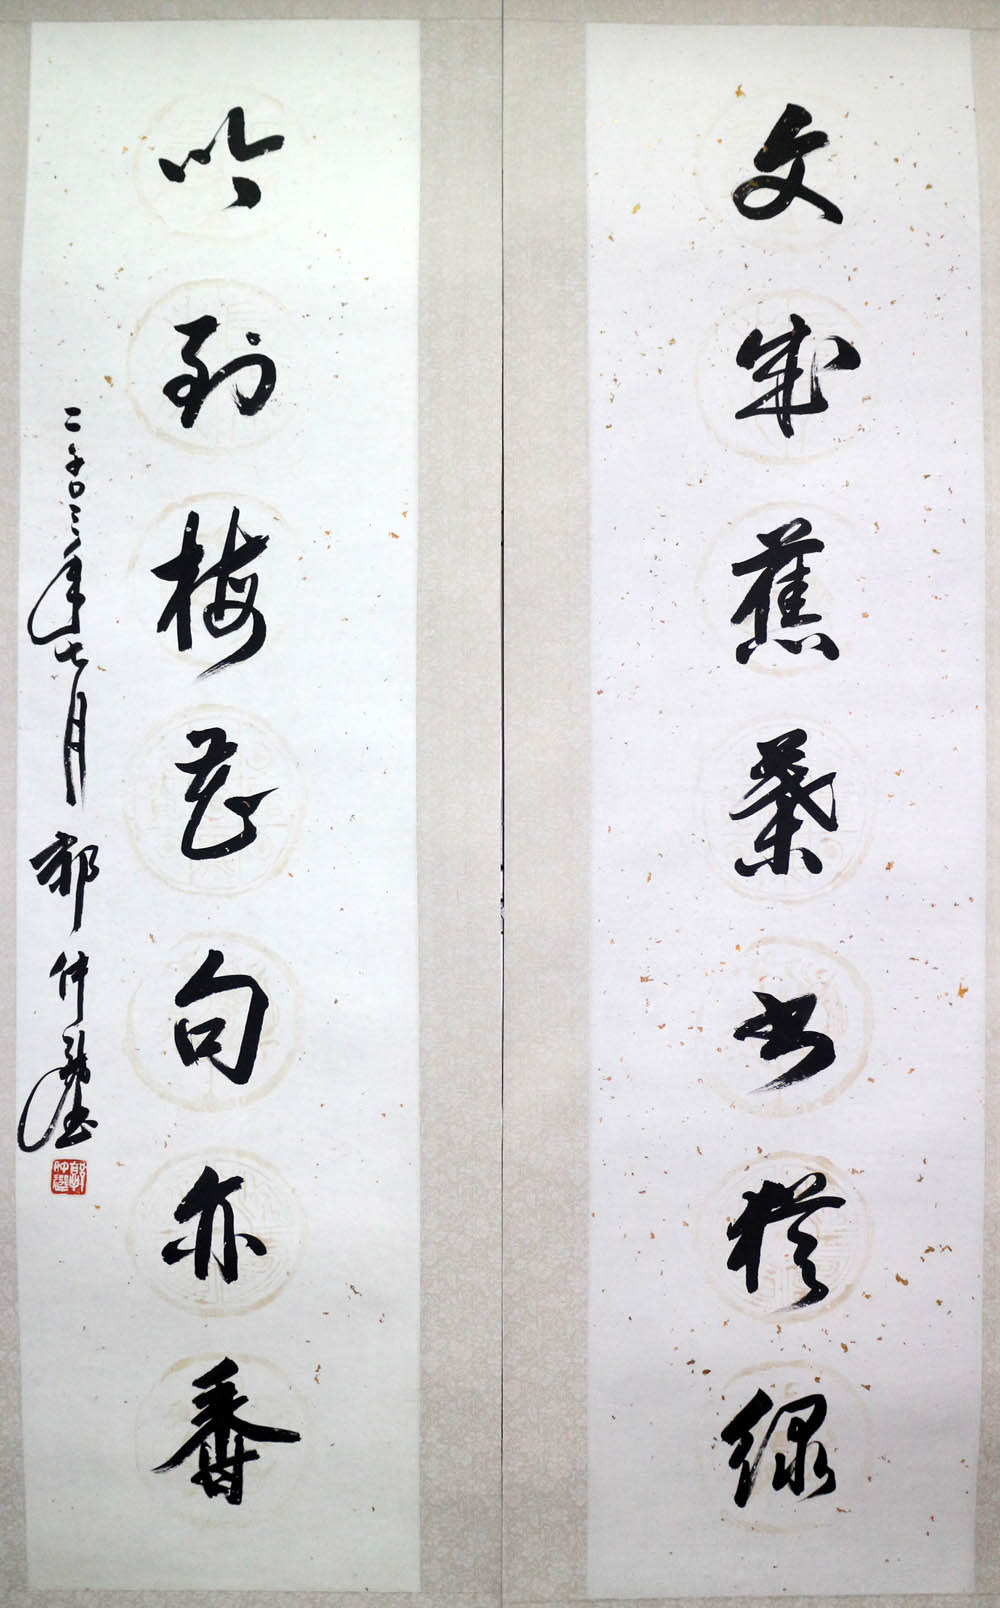 文成蕉葉书犹绿
吟到梅花句亦香
二千〇三年七月 郭仲選